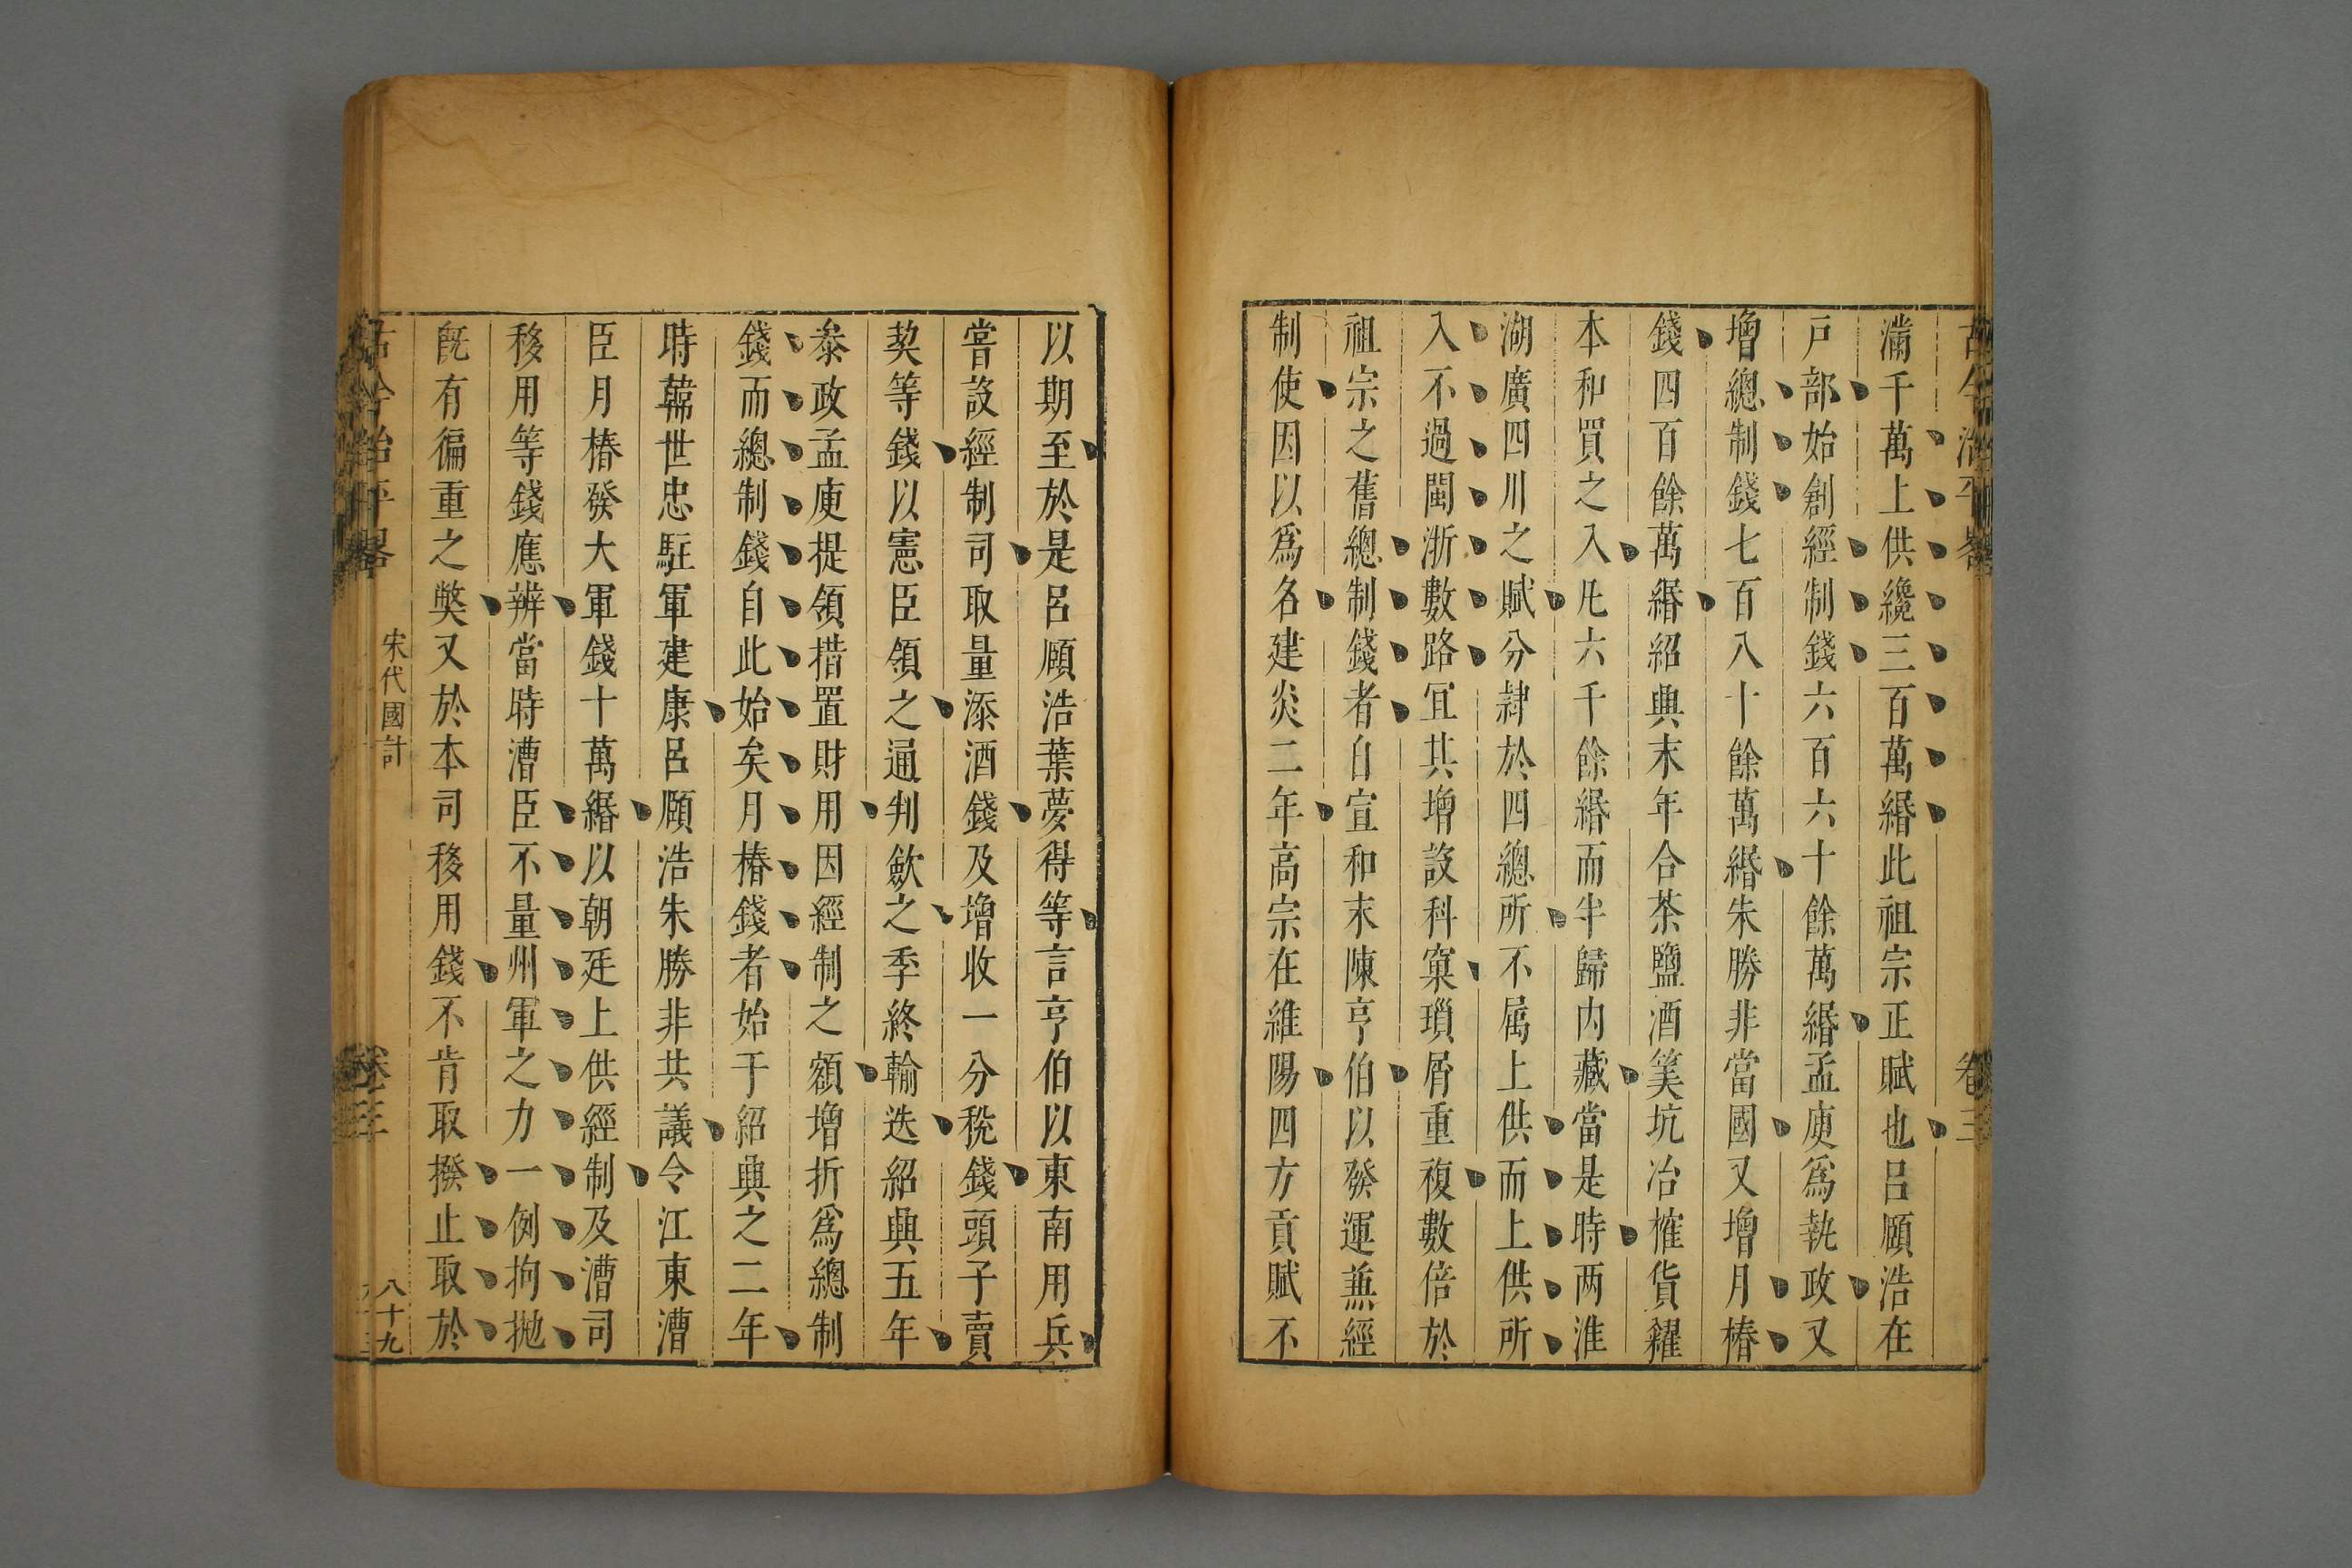 古今治平畧 卷三
滿千萬上供纔三百萬緡此祖宗正賦也呂頤浩在
戸部始創經制錢六百六十餘萬緡孟庾爲執政又
增總制錢七百八十餘萬緡朱勝非當國又增月樁
錢四百餘萬緡紹興末年合茶鹽酒筭坑冶榷貨糴
本和買之入凡六千餘緡而半歸内藏當是時两淮
湖廣四川之賦分隷於四總所不属上供而上供所
入不過閩浙數路冝其增設科窠瑣屑重複數倍於
祖宗之舊總制錢者自宣和末陳亨伯以發運兼經
制使因以爲名建炎二年高宗在維陽四方貢賦不
以期至於是呂頤浩葉夢得等言亨伯以東南用兵
嘗設經制司取量添酒錢及增收一分稅錢頭子賣
契等錢以憲臣領之通判斂之季終輸迭紹興五年
叅政孟庾提領措置財用因經制之額增折爲總制
錢而總制錢自此始矣月樁錢者始于紹興之二年
時韓世忠駐軍建康呂頤浩朱勝非共議令江東漕
臣月樁發大軍錢十萬緡以朝廷上供經制及漕司
移用等錢應辨當時漕臣不量州軍之力一例拘抛
旣有徧重之獘又於本司移用錢不肯取撥止取於
古今治平畧 宋代國計 卷三 八十九